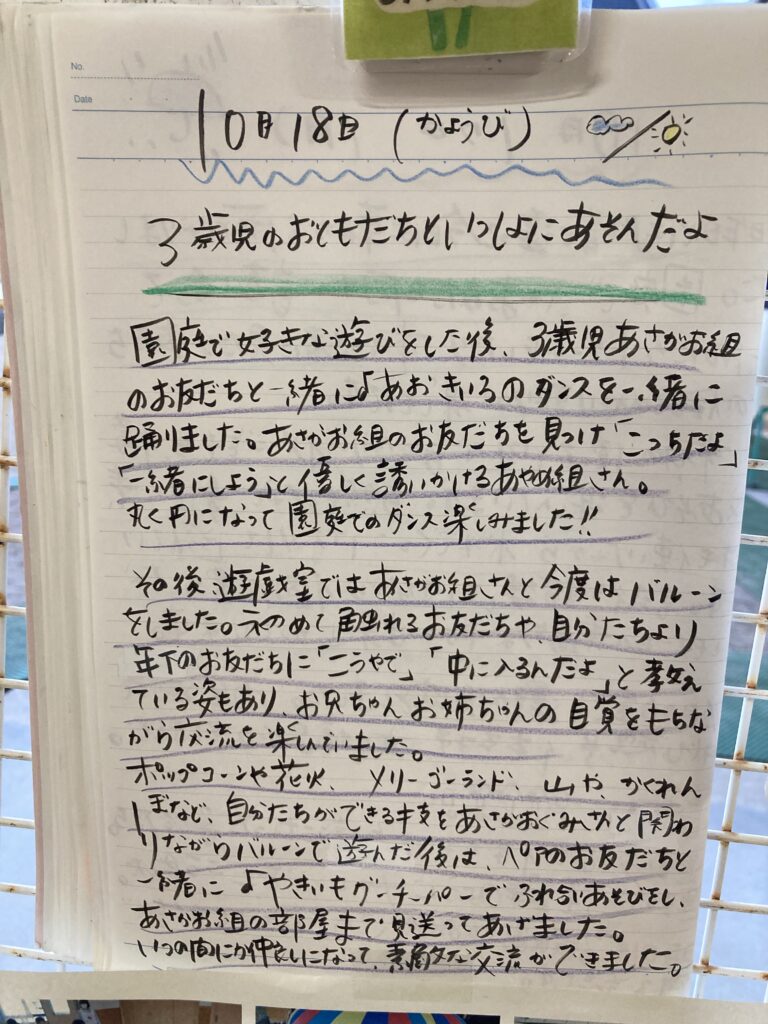 No.
Date
10月18日 (かようび)
3歳児のおともだちといっしょにあそんだよ
園庭で好きな遊びをした後、3歳児あさがお組
のお友だちと一緒に♪あおきいろのダンスを一緒に
踊りました。あさがお組のお友だちを見つけ「こっちだよ」
「一緒にしよう」と優しく誘いかけるあやめ組さん。
丸く円になって園庭でのダンス楽しみました!!
その後遊戯室ではあさがお組さんと今度はバルーン
をしました。初めて触れるお友だちや、自分たちより
年下のお友だちに「こうやで」「中に入るんだよ」と教え
ている姿もあり、お兄ちゃんお姉ちゃんの自覚をもちな
がら交流を楽しんでいました。
ポップコーンや花火、メリーゴーランド、山や、かくれん
ぼなど、自分たちができる技をあさがおぐみさんと関わ
りながらバルーンで遊んだ後は、ペアのお友だちと
一緒に♪やきいもグーチーパーでふれ合いあそびをし、
あさがお組の部屋まで見送ってあげました。
いつの間にか仲良しになって、素敵な交流ができました。